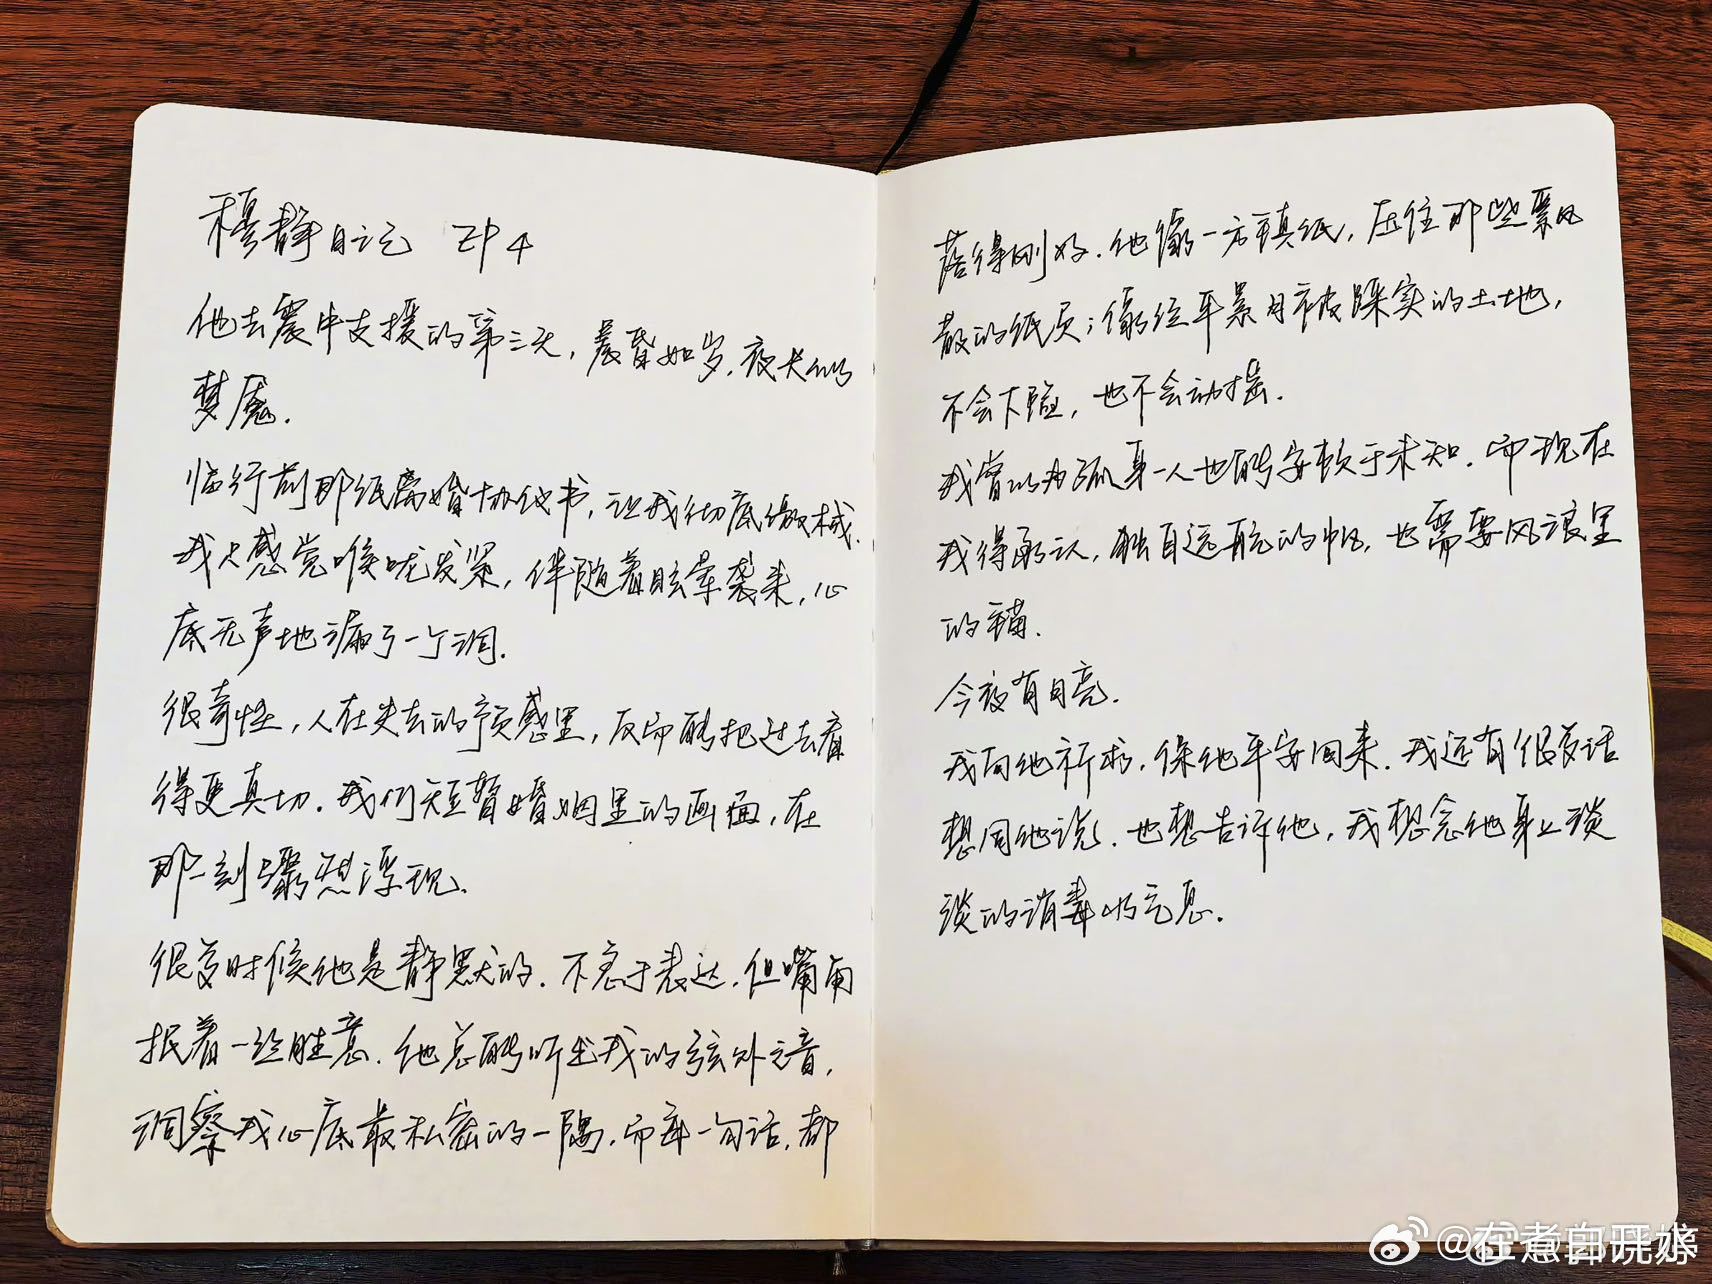 穆静日记 EP4
他去震中支援的第三天，晨昏如岁，夜长的
梦魇.
临行前那纸离婚协议书，让我彻底缴械.
我只感觉喉咙发紧，伴随着眩晕袭来，心
底无声地漏了一个洞.
很奇怪，人在失去的预感里，反而能把过去看
得更真切. 我们短暂婚姻里的画面，在
那一刻骤然浮现.
很多时候他是静默的. 不急于表达. 但嘴角
抿着一丝胜意. 他总能听出我的弦外之音，
洞察我心底最私密的一隅. 而每一句话，都
落得刚好. 他像一方镇纸，压住那些飘风
散的纸页；像经年累月被踩实的土地，
不会下陷，也不会动摇.
我曾以为孤身一人也能安歇于未知. 而现在
我得承认，独自远航的帆，也需要风浪里
的锚.
今夜有月亮.
我向他祈求，保他平安回来. 我还有很多话
想同他说. 也想告诉他，我想念他身上淡
淡的消毒水气息.